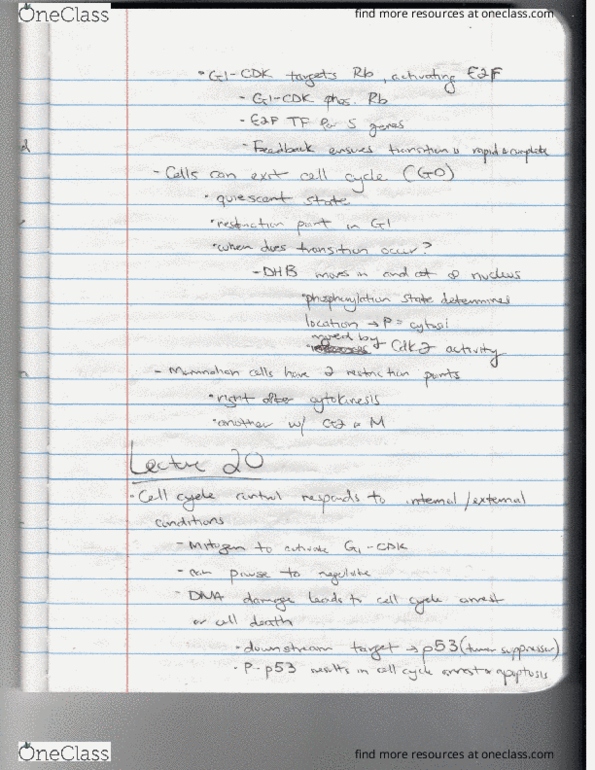 OneClass
find more resources at oneclass.com
• G1-CDK targets Rb, activating E2F
- G1-CDK phos. Rb
- E2F TF for S genes
- Feedback ensures transition is rapid & complete
- Cells can exit cell cycle (G0)
• quiescent state
• restriction point in G1
• when does transition occur?
- DHB moves in and out of nucleus
• phosphorylation state determines
location → P = cytosol
moved by
• Cdk2 activity
- Mammalian cells have 2 restriction points
• right after cytokinesis
• another w/ G2 M
Lecture 20
- Cell cycle control responds to internal/external
conditions
- Mitogen to activate G1-CDK
- can pause to regulate
- DNA damage leads to cell cycle arrest
or cell death
• downstream target → p53 (tumor suppressor)
• P-p53 results in cell cycle arrest & apoptosis
OneClass
find more resources at oneclass.com